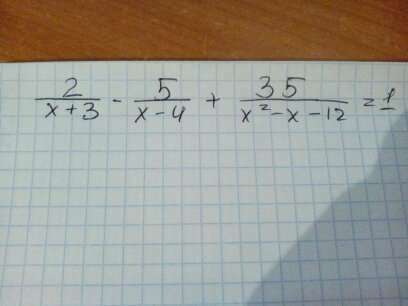 2/(x+3) - 5/(x-4) + 35/(x²-x-12) = 1